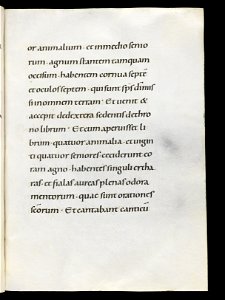 or animalium · et in medio senio
rum · agnum stantem tamquam
occisum · habentem cornua septē
et oculos septem · qui sunt sp̄s dīmis
si in omnem terram · Et uenit &
accepit de dextera sedentis de thro
no librum · Et cum aperuisset li
brum · quatuor animalia · et uigin
ti quatuor seniores · ceciderunt co
ram agno · habentes singuli cytha
ras · et fialas aureas plenas odora
mentorum · quae sunt orationes
sc̄orum · Et cantabant canticū